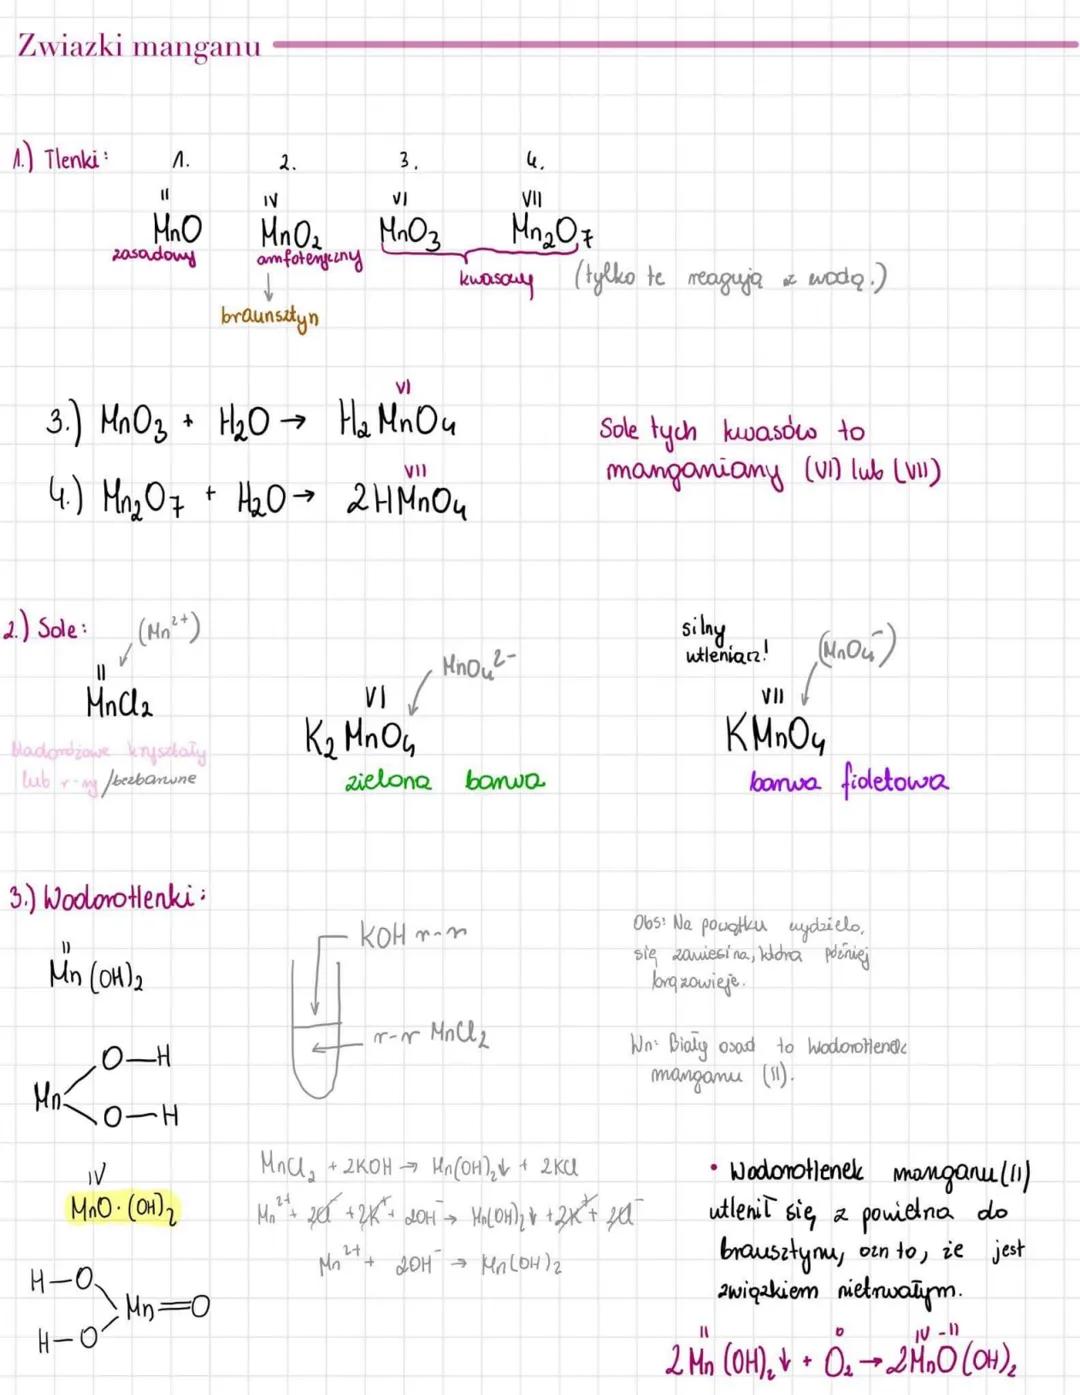 Zwiazki manganu
1.) Tlenki: 1. 2. 3. 4.
II IV VI VII
MnO MnO₂ MnO₃ Mn₂O₇
zasadowy amfoteryczny kwasowy (tylko te reagują z wodą.)
↓
braunsztyn
VI
3.) MnO₃ + H₂O → H₂MnO₄
VII
4.) Mn₂O₇ + H₂O → 2HMnO₄
Sole tych kwasów to
manganiany (VI) lub (VII)
2.) Sole: (Mn²⁺)
II
MnCl₂
bladoróżowe kryształy
lub r-ry /bezbarwne
MnO₄²⁻
VI
K₂MnO₄
zielona barwa
silny
utleniacz! (MnO₄⁻)
VII
KMnO₄
barwa fioletowa
3.) Wodorotlenki:
II
Mn(OH)₂
O—H
Mn
O—H
IV
MnO·(OH)₂
H—O
Mn=O
H—O
KOH r-r
r-r MnCl₂
Obs: Na początku wydziela,
się zawiesina, która później
brązowieje.
Wn: Biały osad to wodorotlenek
manganu (II).
MnCl₂ + 2KOH → Mn(OH)₂↓ + 2KCl
Mn²⁺ + 2Cl⁻ + 2K⁺ + 2OH⁻ → Mn(OH)₂↓ + 2K⁺ + 2Cl⁻
Mn²⁺ + 2OH⁻ → Mn(OH)₂
• Wodorotlenek manganu(II)
utlenił się z powietrza do
brausztynu, ozn to, że jest
związkiem nietrwałym.
II 0 IV -II
2Mn(OH)₂↓ + O₂ → 2MnO(OH)₂